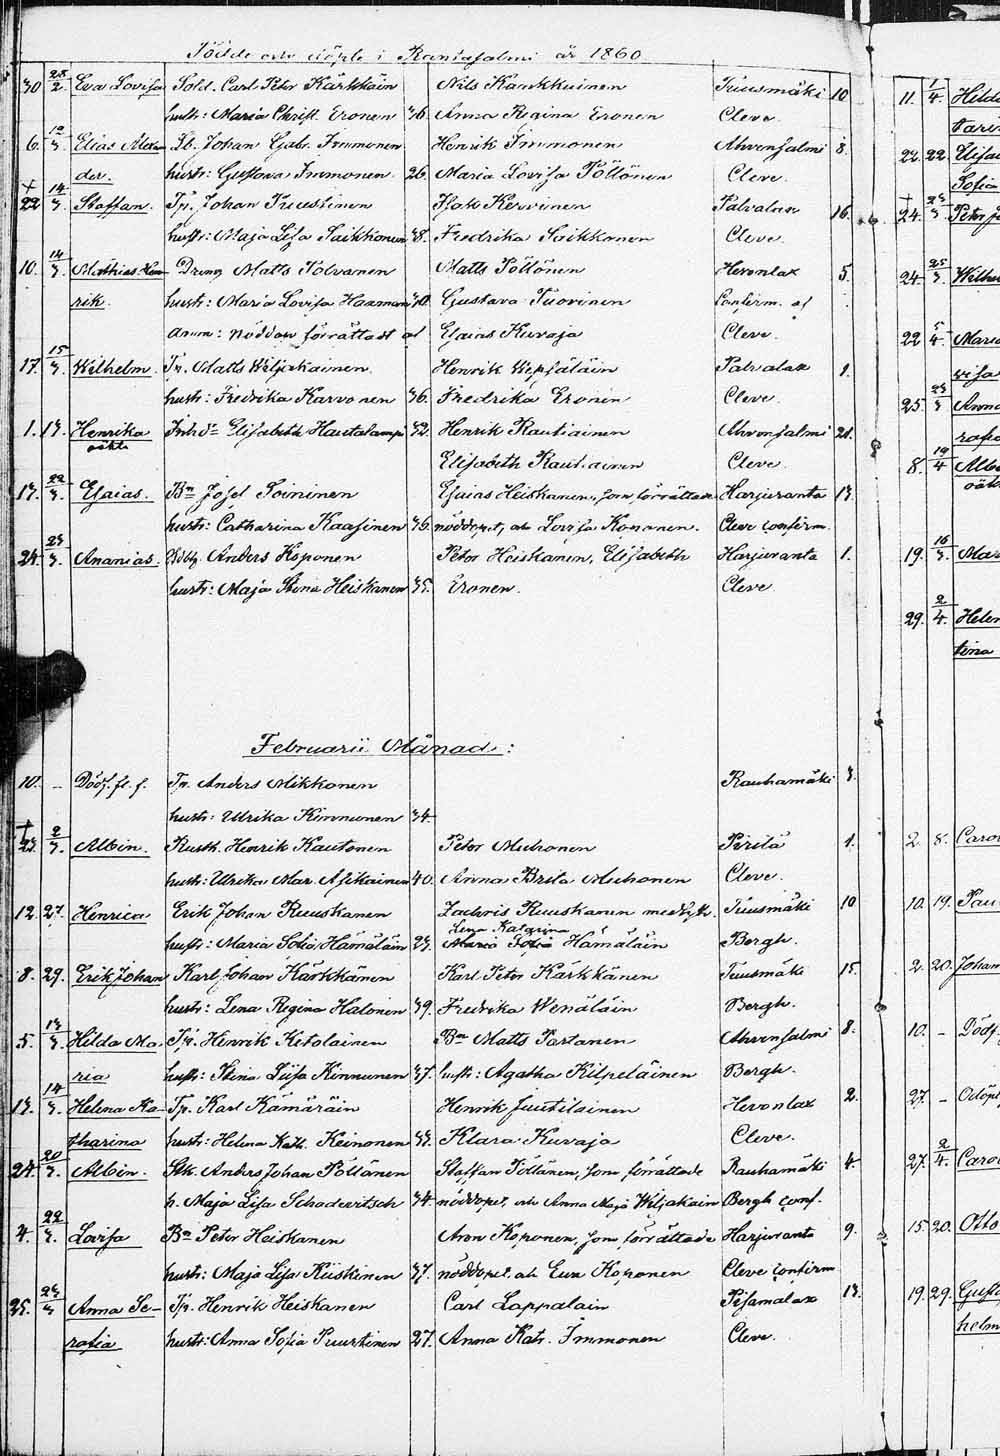 Födde och döpte i Rantasalmi år 1860
30 28/2. Eva Lovisa Sold. Carl Petr Kärkkäin Nils Kankkuinen Tuusmäki 10
hustr: Maria Christ. Eronen 36. Anna Regina Eronen Cleve.
6. 12/3. Elias Alexan Johan Gabr. Immonen Henrik Immonen Ahvensalmi 8.
der. hustr: Gustava Immonen. 26. Maria Lovisa Pöllönen Cleve.
+ 22 14/3. Staffan. Tp. Johan Puustinen Isak Kervinen Palvalax 16.
hustr: Maja Lisa Saikkonen 38. Fredrika Saikkonen Cleve.
10. 14/3. Mathias Hen Dreng Matts Tolvanen Matts Pöllönen Hevonlax 5.
rik. hustr: Maria Lovisa Haaman Gustava Tuovinen Confirm. af
Anm: Nöddop förrättadt af Esaias Kuvaja Cleve.
17. 15/3. Wilhelm. Tp. Matts Wiljakainen. Henrik Wepsäläin Palvalax 1.
hustr: Fredrika Karvonen 36. Fredrika Eronen Cleve.
1. 17. Henrika Inh.d:r Elisabeth Hautalampi 32. Henrik Rautiainen Ahvensalmi 21.
oäkta
Elisabeth Rautiainen Cleve.
13. 22/3. Esaias. Bn Josef Toininen Esaias Heiskanen, som förrättade Harjuranta 13.
hustr: Catharina Kaasinen 36. nöddopet, och Lovisa Kononen. Cleve confirm.
24. 23/3. Ananias. Anders Koponen Peter Heiskanen, Elisabeth Harjuranta 1.
hustr: Maja Stina Heiskanen 35. Eronen. Cleve
Februarii Månad:
10. – Dödf. fl. f. Tp. Anders Mikkonen Rauhamäki 3.
hustr: Ulrika Kinnunen 34.
+ 23. 2/3. Albin. Rusth. Henrik Kautonen Peter Muhonen Pirilä 1.
hustr: Ulrika Mar. Asikainen 40. Anna Brita Muhonen Cleve.
12. 27. Henrica Erik Johan Ruuskanen Zachris Ruuskanen med hstr. Tuusmäki 10
Lena Katarina
hustr: Maria Sofia Hämäläin 23. Maria Sofia Hämäläin Bergh.
8. 29. Erik Johan Karl Johan Kärkkänen Karl Peter Kärkkänen Tuusmäki 15.
hustr: Lena Regina Halonen 39. Fredrika Wenäläin Bergh.
5. 13/3. Hilda Ma- Tp. Henrik Ketolainen Bn Matts Partanen Ahvensalmi 8.
ria hustr: Stina Lisa Kinnunen 37. hustr: Agatha Kilpeläinen Bergh.
13. 14/3. Helena Ka- Tp. Karl Kämäräin Henrik Juutilainen Hevonlax 2.
tharina hustr: Helena Kath. Keinonen 33. Klara Kuvaja Cleve.
24. 20/3. Albin. Anders Johan Pöllänen Staffan Pöllänen, som förrättade Rauhamäki 4.
h. Maja Lisa Schadevitsch 34. nöddopet, och Anna Maja Wiljakain Bergh conf.
4. 22/3. Lovisa Bn Peter Heiskanen Aron Koponen, som förrättade Harjuranta 9.
hustr: Maja Lisa Kiiskinen 37. nöddopet. och Eva Koponen Cleve confirm
25. 23/3 Anna Se- Tp. Henrik Heiskanen Carl Lappalain Pisamalax 13.
rafia hustr: Anna Sofia Puurtinen 27. Anna Katr. Immonen Cleve.
11. 1/4. Hild
22. 22. Elisa
Sofia
+ 24. 23/3 Peter J
24. 25/3 Wilh
22 5/4. Maria
visa
25. 23/3 Anna
rafia
8. 19/4 Albi
oäk
19. 16/3. Mar
29. 2/4. Helen
tina
2. 8. Caro
10. 19. Pau
2. 20. Johan
10. – Dödf.
27. – Odöpt
27. 2/4. Caro
15 20. Otto
19. 29. Gusta
helm